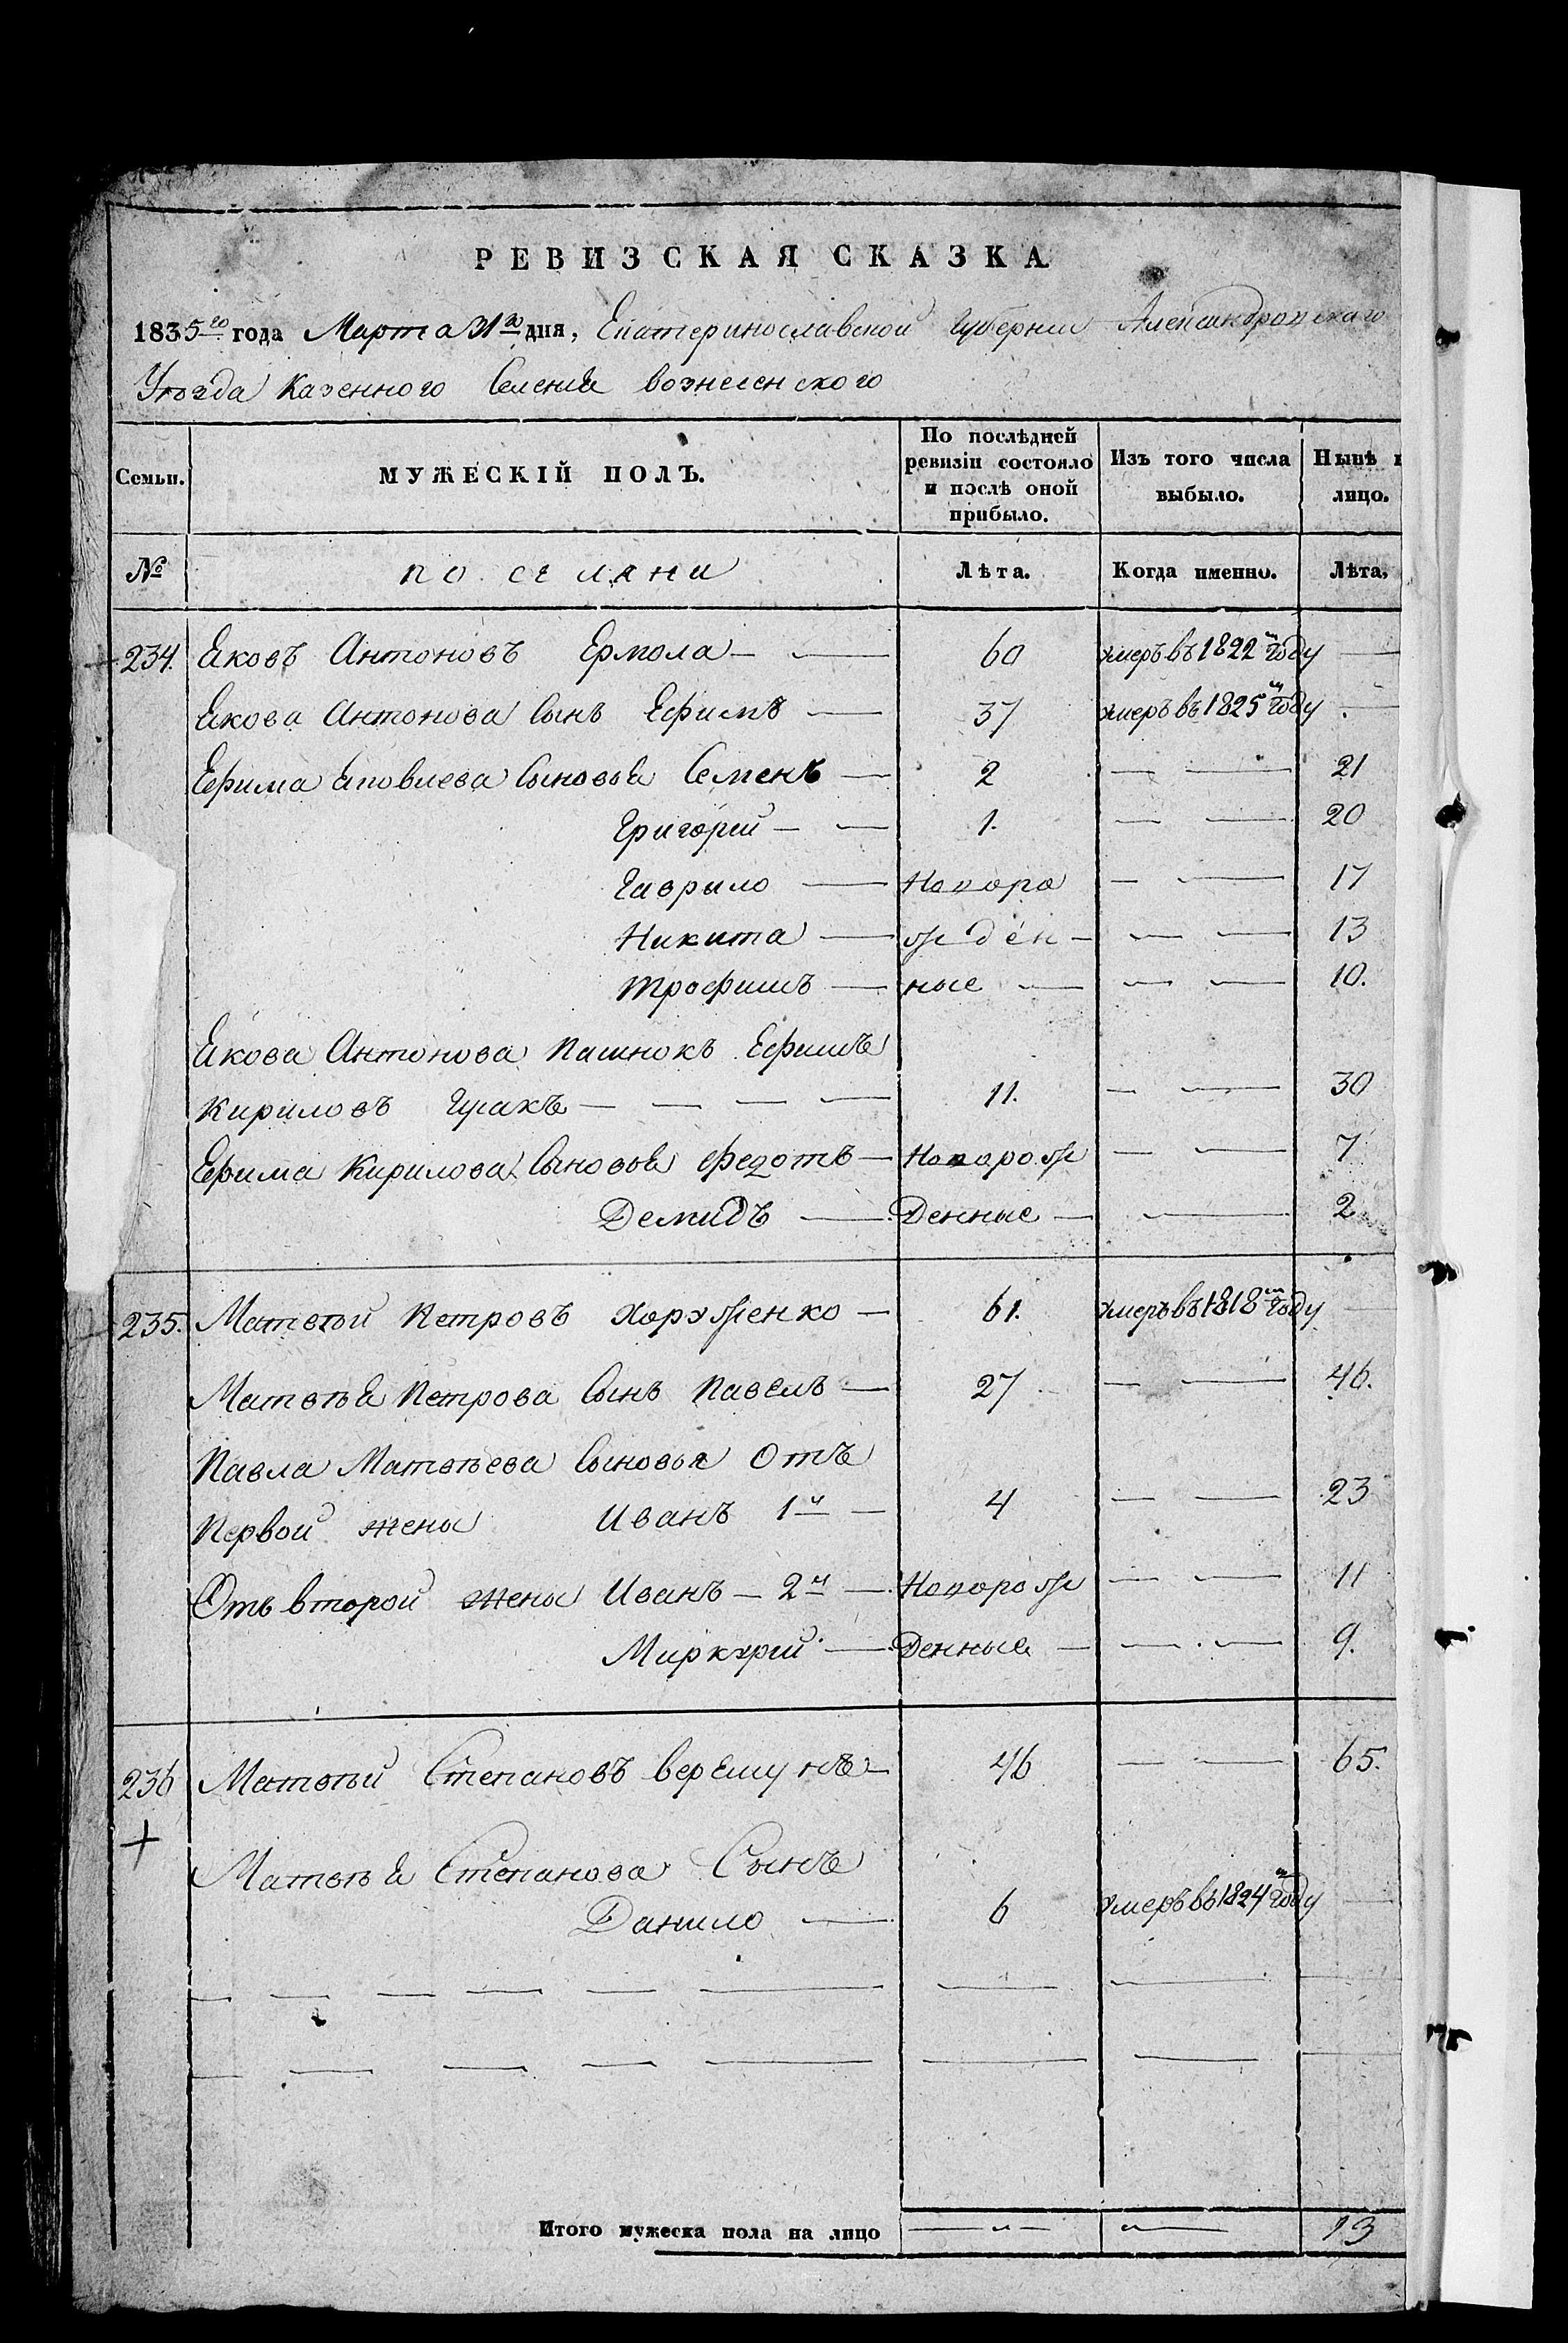 РЕВИЗСКАЯ СКАЗКА
1835го года Марта 31го дня, Екатеринославской Губернии Александровского
Уѣзда Казенного Селения вознесенского
Семьи. МУЖЕСКІЙ ПОЛЪ. По послѣдней ревизіи состояло и послѣ оной прибыло. Изъ того числа выбыло. Нынѣ лицо.
№ поселяни Лѣта. Когда именно. Лѣта.
234. Яковъ Антоновъ Ермола — — 60 умеръ въ 1822м году —
Якова Антонова Сынъ Ефимъ — 37 умеръ въ 1825м году —
Ефима Яковлева Сыновья Семенъ — 2 — — 21
Григорій — — 1. — — 20
Гаврило — Новоро — — 17
Никита — жден- — — 13
Трофимъ — ные — — — 10.
Якова Антонова Пасинокъ Ефимъ
Кириловъ Гусакъ — — — — 11. — — 30
Ефима Кирилова Сыновья Федотъ — Новорож — — 7
Демидъ — Денные — — 2
235. Матвѣй Петровъ Хоруженко — 61. умеръ въ 1818м году —
Матвѣя Петрова Сынъ Павелъ — 27 — — 46.
Павла Матвѣева Сыновья Отъ
Первой жены Иванъ 1й — 4 — — 23
Отъ второй жены Иванъ — 2й — Новорож — — 11
Миркурій — Денные — — — 9.
236 Матвѣй Степановъ 46 — — 65.
+
Матвѣя Степанова Сынъ
Данило — 6 умеръ въ 1824м году —
Итого мужеска пола на лицо — — 13